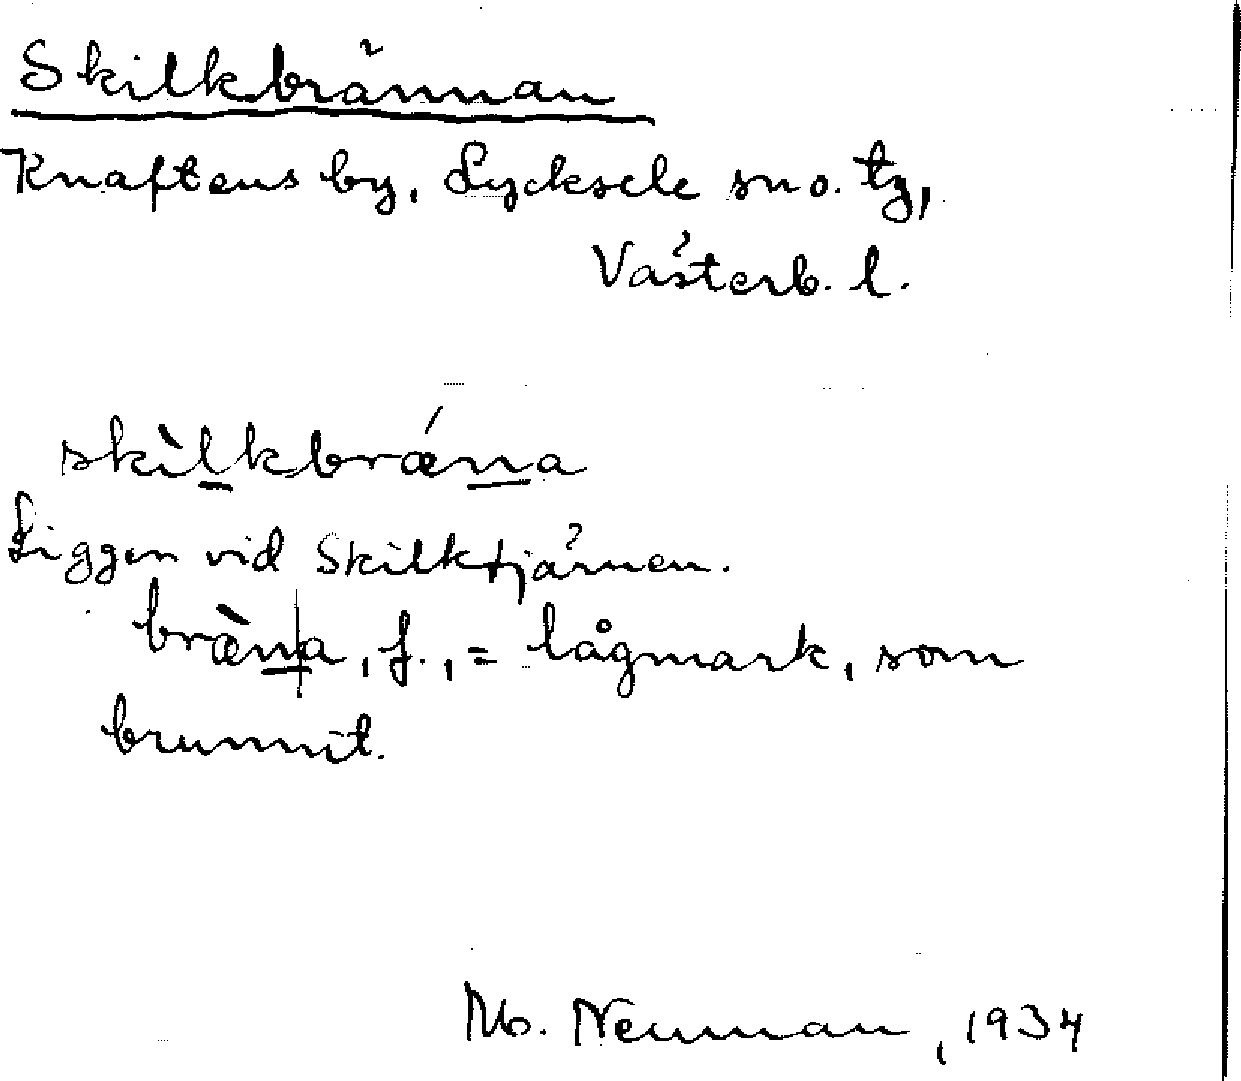 Skilkbrännan
Knaftens by, Lycksele sn o. tg,
Västerb. l.
skìlkbrǽna
Ligger vid Skilktjärnen.
bræ̀na, f., = lågmark, som
brunnit.
Mb. Neuman, 1934